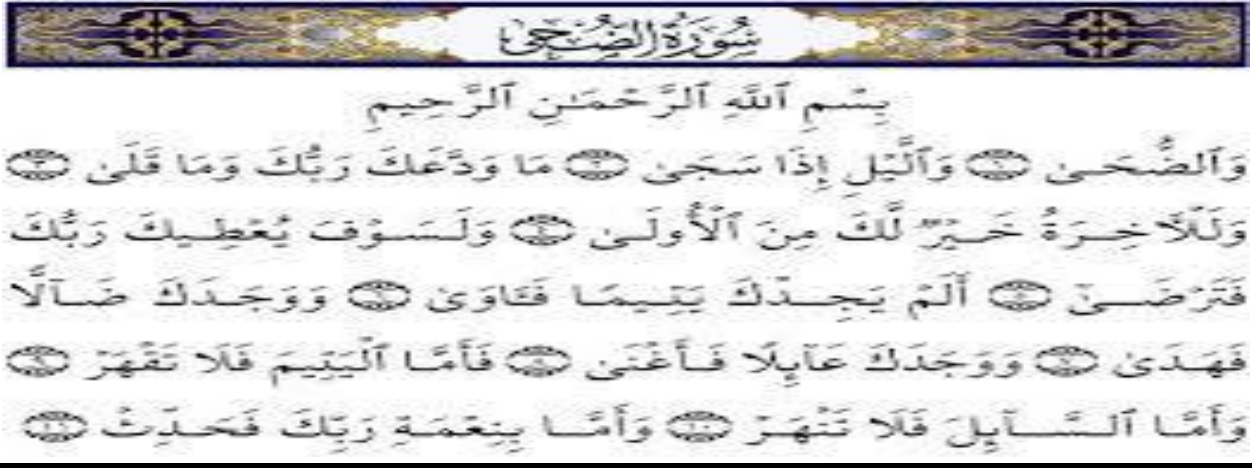 سُورَةُ الضُّحَىٰ
بِسْمِ ٱللَّهِ ٱلرَّحْمَـٰنِ ٱلرَّحِيمِ
وَٱلضُّحَىٰ ١ وَٱلَّيْلِ إِذَا سَجَىٰ ٢ مَا وَدَّعَكَ رَبُّكَ وَمَا قَلَىٰ ٣
وَلَلْآخِرَةُ خَيْرٌ لَّكَ مِنَ ٱلْأُولَىٰ ٤ وَلَسَوْفَ يُعْطِيكَ رَبُّكَ
فَتَرْضَىٰٓ ٥ أَلَمْ يَجِدْكَ يَتِيمًا فَـَٔاوَىٰ ٦ وَوَجَدَكَ ضَآلًّا
فَهَدَىٰ ٧ وَوَجَدَكَ عَآئِلًا فَأَغْنَىٰ ٨ فَأَمَّا ٱلْيَتِيمَ فَلَا تَقْهَرْ ٩
وَأَمَّا ٱلسَّآئِلَ فَلَا تَنْهَرْ ١٠ وَأَمَّا بِنِعْمَةِ رَبِّكَ فَحَدِّثْ ١١